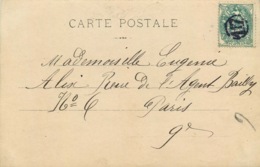 CARTE POSTALE
Mademoiselle Eugenie
Alix Rue de l'Agent Bailly
No 6 Paris
9e